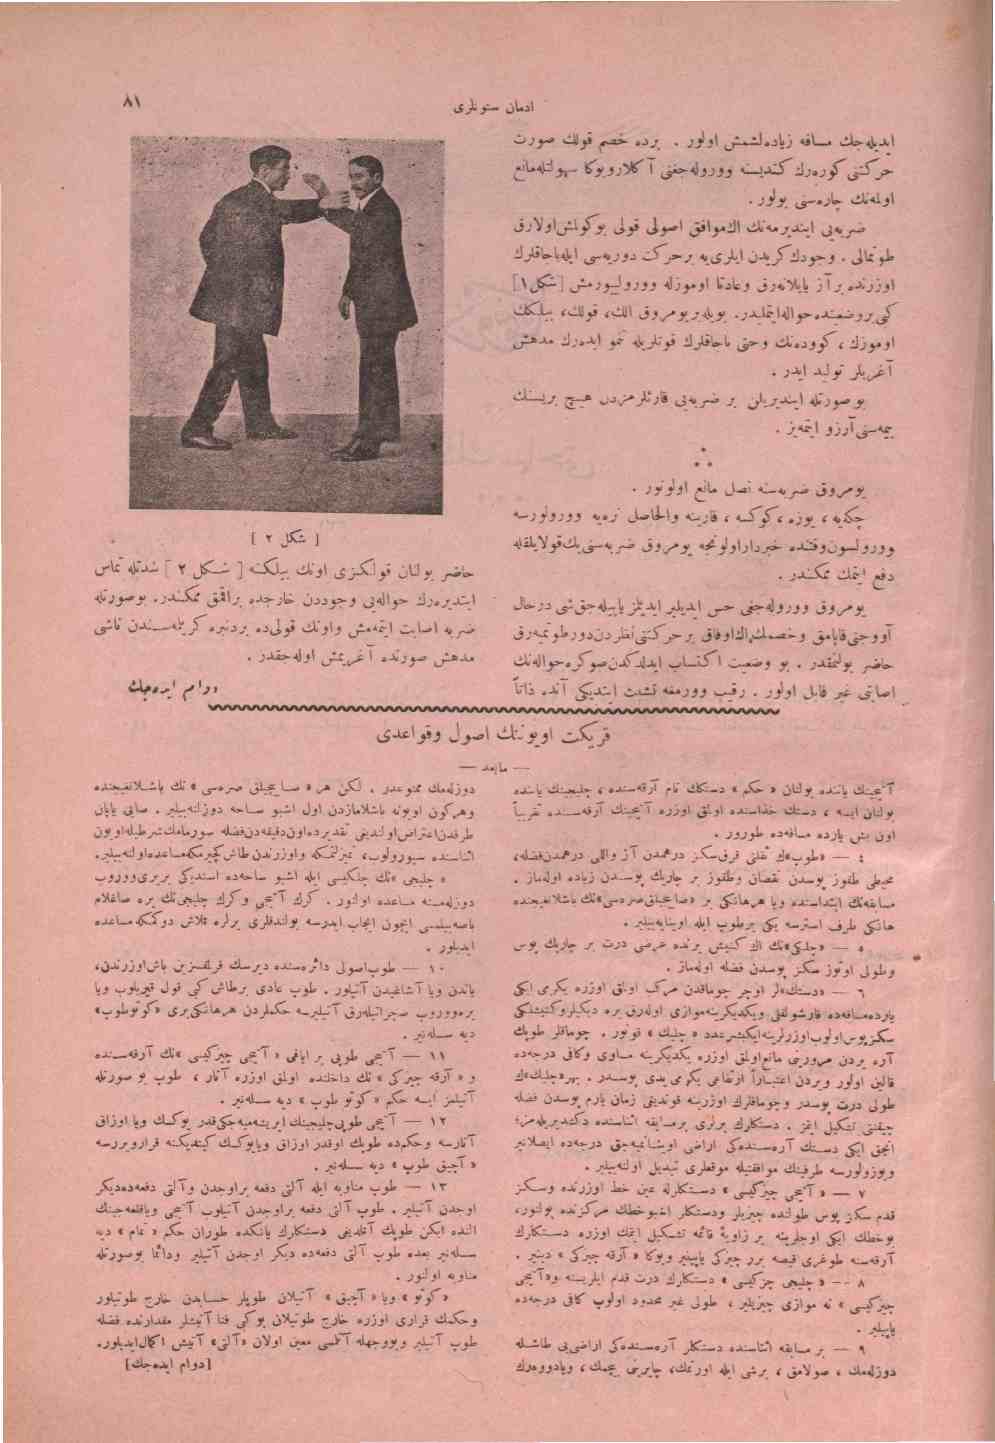 ادمان ستونلری
٨١
ایدیله‌جك مسافه زیاده‌لشمش اولور . برده خصم قولك صورت
حركتنی كوره‌رك كندیسنه وورولەجغنی آكلار وبوكا سهولتله مانع
اولمه‌نك چاره‌سنی بولور .
ضربه‌یی ایندیرمه‌نك اك موافق اصولی قولی بوكولمش اولارق
طوتمالی . وجودك كریدن ایلری‌یه بر حركت دوریه‌سی ایله باجاقلرك
اوزرنده بر آز یایلانه‌رق وعادتا اوموزله وورولیورمش [شكل ١]
كبی بر وضعیتده حواله ایتملیدر. بویله بر یومروق الك، قولك، بیلكك
اوموزك ، كووده‌نك وحتی باجاقلرك قوتلریله نمو ایده‌رك مدهش
آغریلر تولید ایدر .
بو صورتله ایندیریلن بر ضربه‌یی قارئلرمزدن هیچ بریسنك
ییمه‌سنی آرزو ایتمه‌یز .
یومروق ضربه‌سنه نصل مانع اولونور .
چكه‌یه ، یوزه ، كوكسه ، قارینه والحاصل نره‌یه وورولورسه
وورولسون وقتنده خبردار اولونجه یومروق ضربه‌سنی پك قولایلقله
دفع ایتمك ممكندر .
یومروق وورولەجغی حس ایدیلیر ایدیلمز یاپیله‌جق شی درحال
آووجنی قاپامق وخصمك اك اوفاق بر حركتنی نظردن دور طوتمیه‌رق
حاضر بولنمقدر . بو وضعیت اكتساب ایدلدكدن صوكره حواله‌نك
اصابتی غیر قابل اولور . رقیب وورمغه تشبث ایتدیكی آنده ذاتاً
[ شكل ٢ ]
حاضر بولنان قولكزی اونك بیلكنه [ شكل ٢ ] شدتله تماس
ایتدیره‌رك حواله‌یی وجوددن خارجده براقمق ممكندر. بوصورتله
ضربه اصابت ایتمه‌مش واونك قولی‌ده بردنبره كریلمه‌سندن ناشی
مدهش صورتده آغریمش اوله‌جقدر .
دوام ایده‌جك
قریكت اویوننك اصول وقواعدی
— مابعد —
آتیجینك یاننده بولنان « حكم » دستكك تام آرقه‌سنده ، چلیجینك یاننده
بولنان ایسه ، دستك حذاسنده اولمق اوزره آتیجینك آرقه‌سنده تقریباً
اون بش یارده مسافه‌ده طورور .
٤ — «طوپ»ك ثقلتی قرق سكز درهمدن آز واللی درهمدن فضله،
محیطی طقوز پوسدن نقصان وطقوز بر چاریك پوسدن زیاده اوله‌ماز .
مسابقه‌نك ابتداسنده ویا هرهانكی بر «صاییجیلق صره‌سی»نك باشلانغیجنده
هانكی طرف استرسه یكی بر طوپ ایله اوینایه‌بیلیر.
٥ — «چلیكی»نك اك كنیش یرنده عرضی درت بر چاریك پوس
وطولی اوتوز سكز پوسدن فضله اوله‌ماز .
٦ — «دستك»لر اوچر چوماقدن مركب اولمق اوزره یكرمی ایكی
یارده مسافه‌ده قارشولقلی ویكدیكرینه موازی اوله‌رق یره دیكیلیر وكنیشلكی
سكز پوس اولوب اوزرلرینه ایكیشر عدد « چلیك » قونور . چوماقلر طوپك
آره یردن مرورینی مانع اولمق اوزره یكدیكرینه مساوی وكافی درجه‌ده
قالین اولور ویردن اعتباراً ارتفاعی یكرمی یدی پوسدر . بهر «چلیك»ك
طولی درت پوسدر وچوماقلرك اوزرینه قوندیغی زمان یارم پوسدن فضله
چیقنتی تشكیل ایتمز . دستكلرك یرلری بر مسابقه اثناسنده دكشدیریله‌مز؛
انجق ایكی دستك آره‌سنده‌كی اراضی اوینانمیه‌جق درجه‌ده ایصلانیر
وبوزولورسه طرفینك موافقتیله موقعلری تبدیل اولنه‌بیلیر .
٧ — « آتیجی چیزكیسی » دستكلرله عین خط اوزرنده وسكز
قدم سكز پوس طولنده چیزیلیر ودستكلر اشبو خطك مركزنده بولنور،
بوخطك ایكی اوجلرینه بر زاویهٔ قائمه تشكیل ایتمك اوزره دستكلرك
آرقه‌سنه طوغری قیصه برر چیزكی یاپیلیر وبوكا « آرقه چیزكی » دینیر .
٨ — « چلیجی چزكیسی » دستكلرك درت قدم ایلریسنه و«آتیجی
چیزكیسی » نه موازی چیزیلیر ، طولی غیر محدود اولوب كافی درجه‌ده
یاپیلیر .
٩ — بر مسابقه اثناسنده دستكلر آره‌سنده‌كی اراضی‌یی طاشله
دوزله‌مك ، صولامق ، برشی ایله اورتمك، چایرینی بیچمك ، ویا دووه‌رك
دوزله‌مك ممنوعدر . لكن هر « صاییجیلق صره‌سی » نك باشلانغیجنده
وهركون اویونه باشلامازدن اول اشبو ساحه دوزلنه‌بیلیر . صایی یاپان
طرفدن اعتراض اولندیغی تقدیرده اون دقیقه‌دن فضله سورمامك شرطیله اویون
اثناسنده سپورولوب، تمیزلنمكه واوزرندن طاش كچیرمكه مساعده اولنه‌بیلیر.
« چلیجی »نك چلیكیسی ایله اشبو ساحه‌ده استدیكی بر یری ووروب
دوزله‌مسنه مساعده اولنور . كرك آتیجی وكرك چلیجی‌نك یره صاغلام
باصه‌بیلمسی ایچون ایجاب ایدرسه بولندقلری یرلره تلاش دوكمكه مساعده
ایدیلور .
١٠ — طوپ اصولی دائره‌سنده دیرسك قرلقسزین باش اوزرندن،
یاندن ویا آشاغیدن آتیلور . طوپ عادی بر طاش كبی قول قیریلوب ویا
یره ووروب سچراتیله‌رق آتیلیرسه حكملردن هرهانكی بری «كوتو طوپ»
دیه سسله‌نیر .
١١ — آتیجی طوپی بر ایاغی « آتیجی چیزكیسی »نك آرقه‌سنده
و « آرقه چیزكی » نك داخلنده اولمق اوزره آتار ، طوپ بو صورتله
آتیلمز ایسه حكم « كوتو طوپ » دیه سسله‌نیر .
١٢ — آتیجی طوپی چلیجینك ایریشه‌میه‌جكی قدر یوكسك ویا اوزاق
آتارسه وحكم‌ده طوپك اوقدر اوزاق ویا یوكسك كیتدیكنه قرار ویررسه
« آچیق طوپ » دیه سسله‌نیر .
١٣ — طوپ مناوبه ایله آلتی دفعه بر اوجدن وآلتی دفعه‌ده دیكر
اوجدن آتیلیر . طوپ آلتی دفعه بر اوجدن آتیلوب آتیجی ویا قلعه‌جینك
النده ایكن طوپك آتلدیغی دستكلرك یانكده طوران حكم « تمام » دیه
سسله‌نیر بعده طوپ آلتی دفعه‌ده دیكر اوجدن آتیلیر ودائما بوصورتله
مناوبه اولنور .
« كوتو » ویا « آچیق » آتیلان طوپلر حسابدن خارج طوتیلور
وحكمك قراری اوزره خارج طوتیلان بوكبی فنا آتیشلر مقدارنده فضله
طوپ آتیلیر وبووجهله آتلمسی معین اولان «آلتی» آتیش اكمال ایدیلور.
[دوام ایده‌جك]